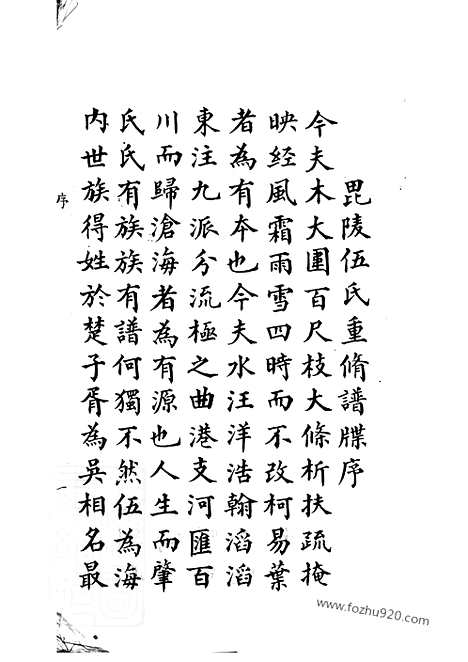 毘陵伍氏重脩譜牒序
今夫木大圍百尺枝大條析扶疏掩
映经風霜雨雪四時而不改柯易葉
者為有夲也今夫水汪洋浩翰滔滔
東注九派分流極之曲港支河匯百
川而歸滄海者為有源也人生而肇
氏氏有族族有譜何獨不然伍為海
内世族得姓於楚子胥為吳相名最
序
一
www.fozhu920.com